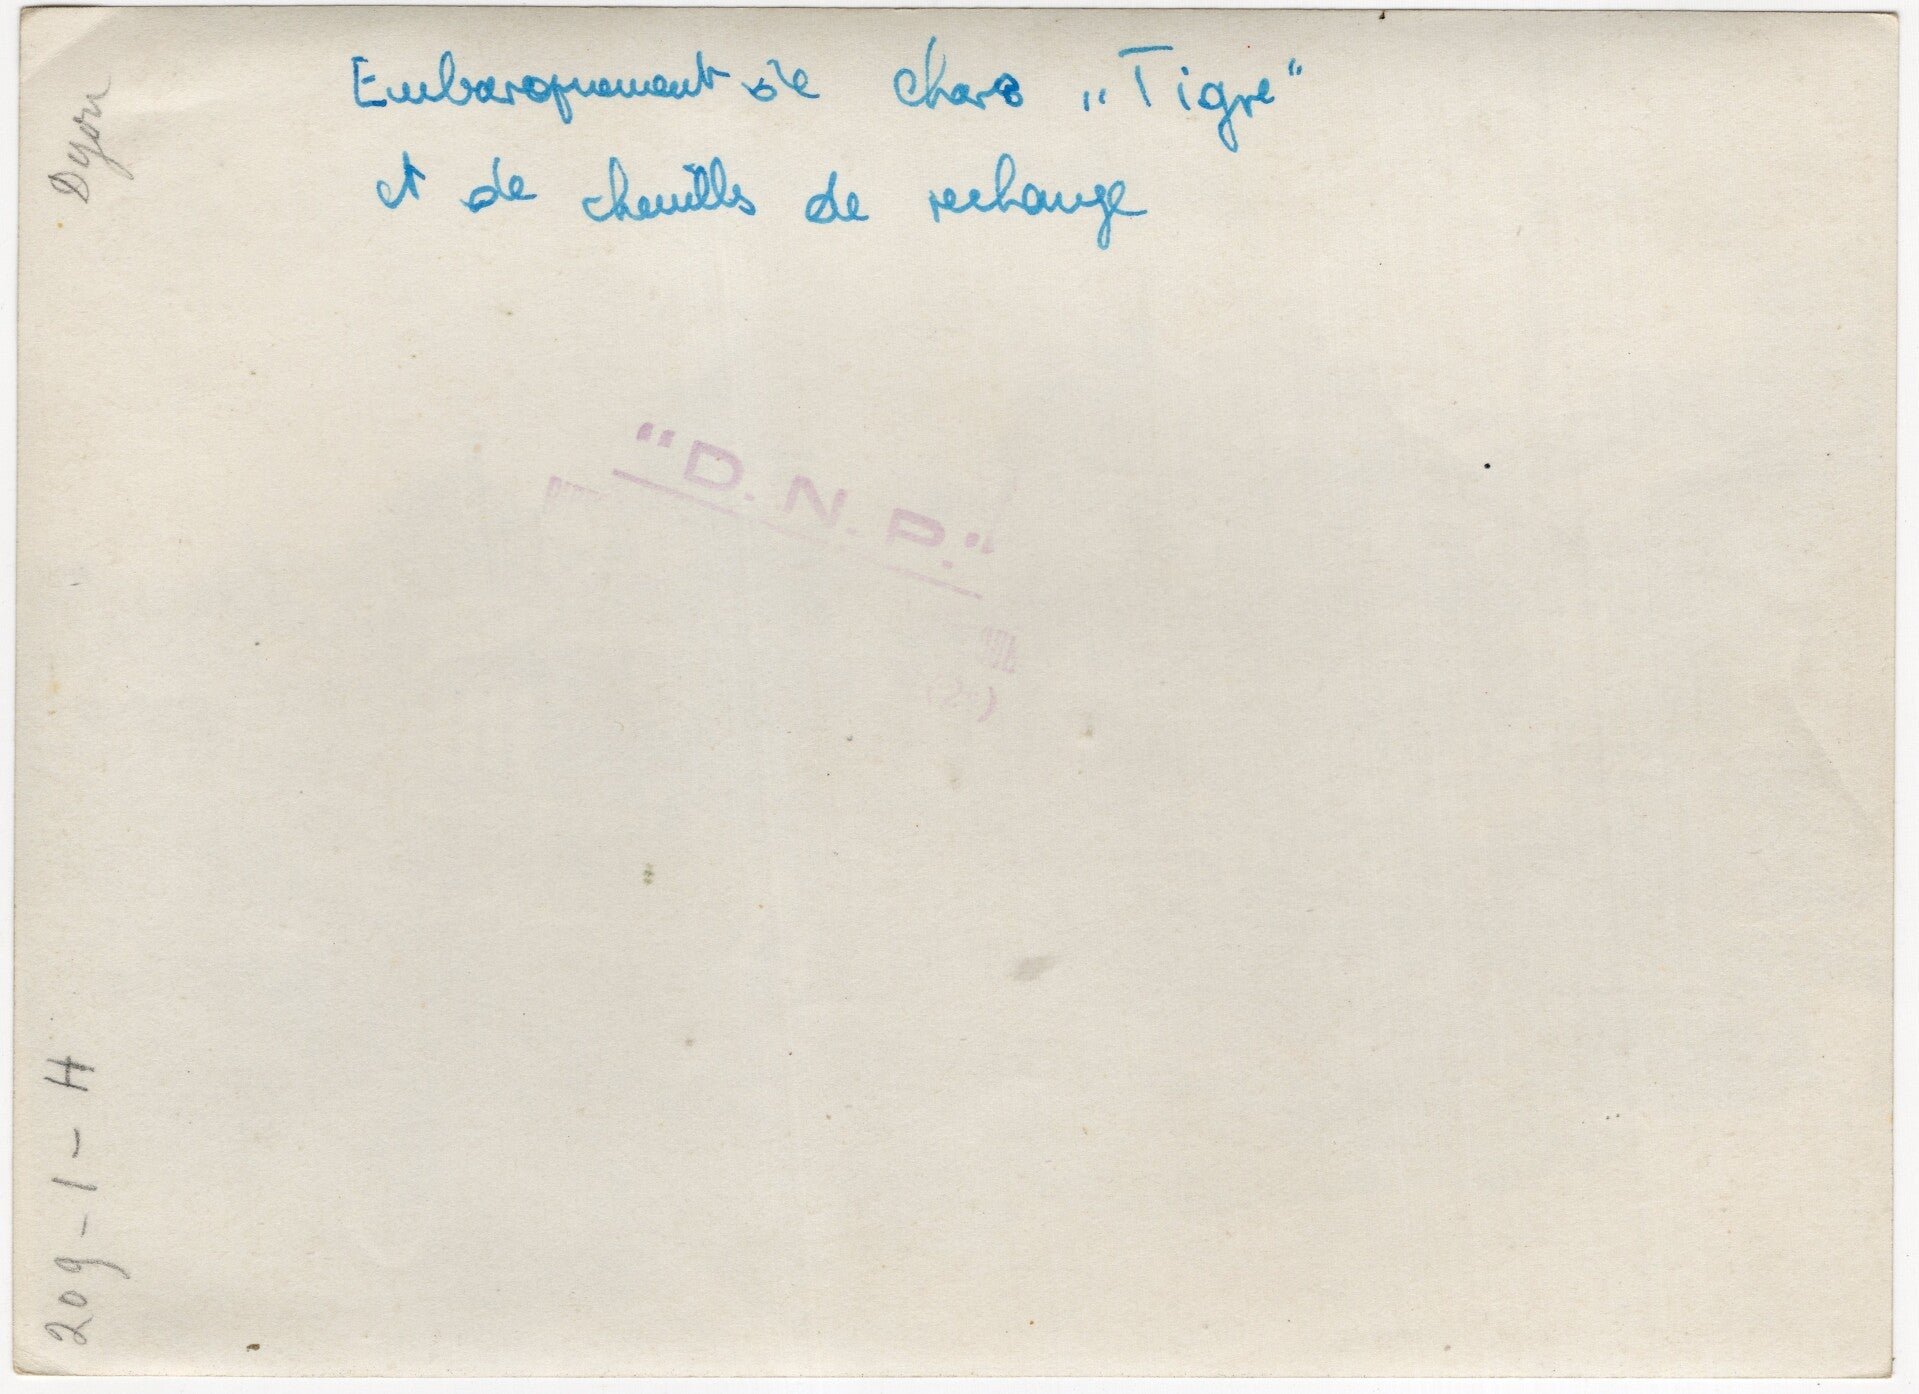 Embarquement de chars „Tigre"
et de chenilles de rechange
"D. N. P."
209-1-H